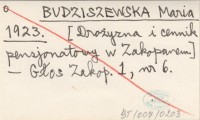 BUDZISZEWSKA Maria
1923. [Drożyzna i cennik
pensjonatowy w Zakopanem]
— Głos Zakop. 1, nr 6.
BJ/007/0203